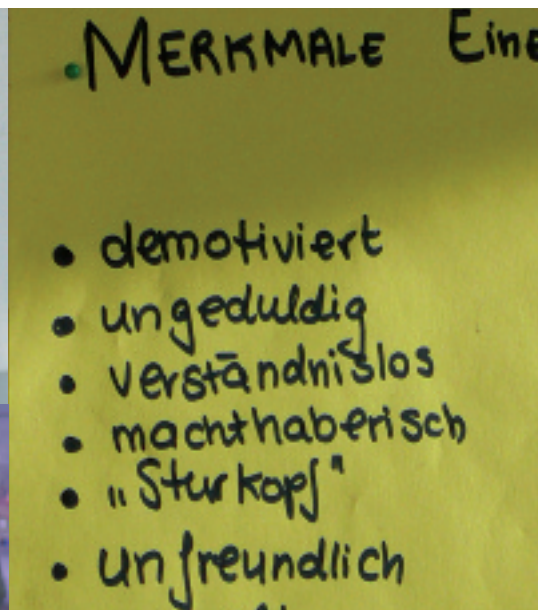 MERKMALE EinE
• demotiviert
• ungeduldig
• verständnislos
• machthaberisch
• „Sturkopf"
• unfreundlich